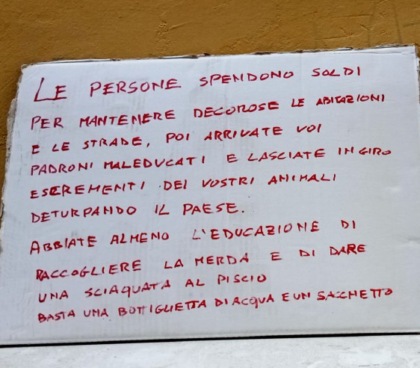 LE PERSONE SPENDONO SOLDI
PER MANTENERE DECOROSE LE ABITAZIONI
E LE STRADE, POI ARRIVATE VOI
PADRONI MALEDUCATI E LASCIATE IN GIRO
ESCREMENTI DEI VOSTRI ANIMALI
DETURPANDO IL PAESE.
ABBIATE ALMENO L'EDUCAZIONE DI
RACCOGLIERE LA MERDA E DI DARE
UNA SCIAQUATA AL PISCIO
BASTA UNA BOTTIGLIETTA DI ACQUA E UN SACCHETTO